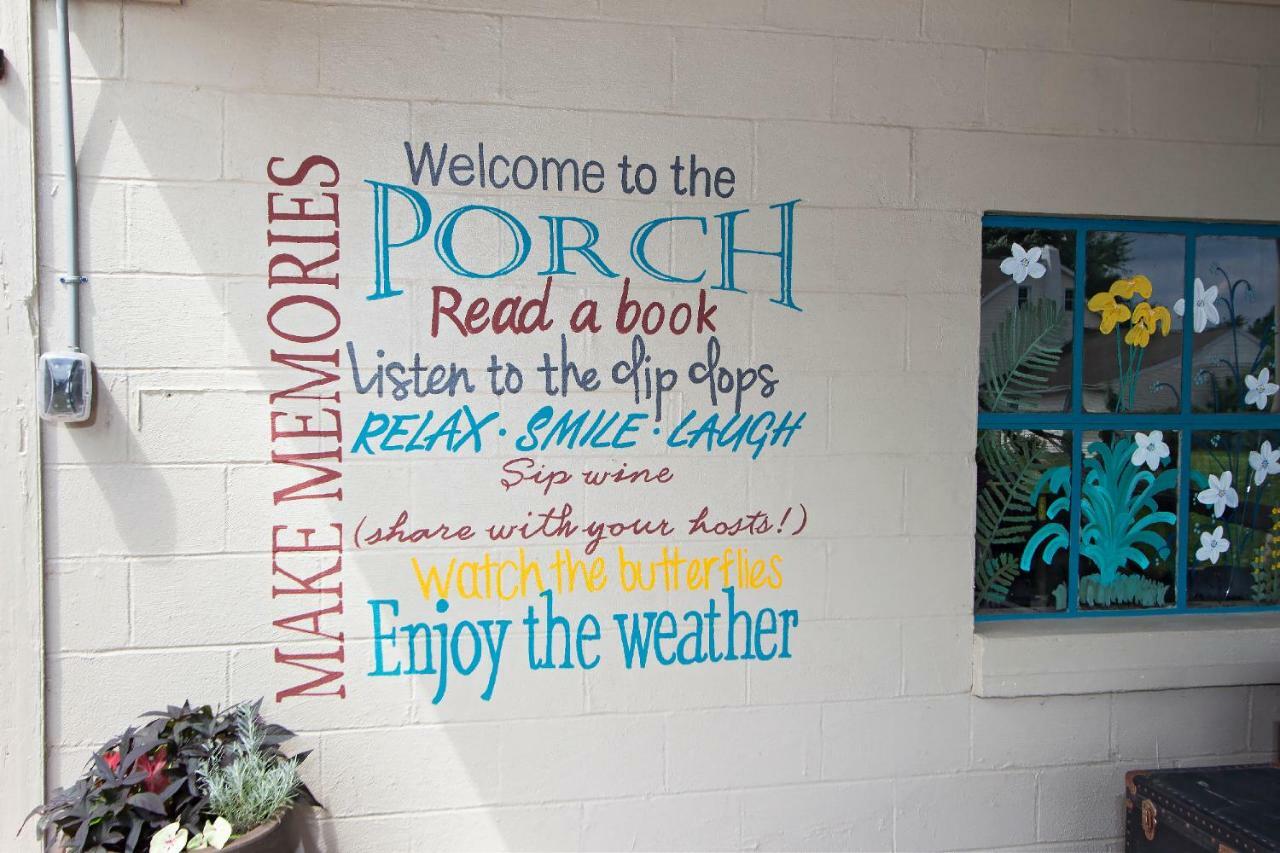 MAKE MEMORIES
Welcome to the
PORCH
Read a book
Listen to the clip clops
RELAX · SMILE · LAUGH
Sip wine
(share with your hosts!)
Watch the butterflies
Enjoy the weather